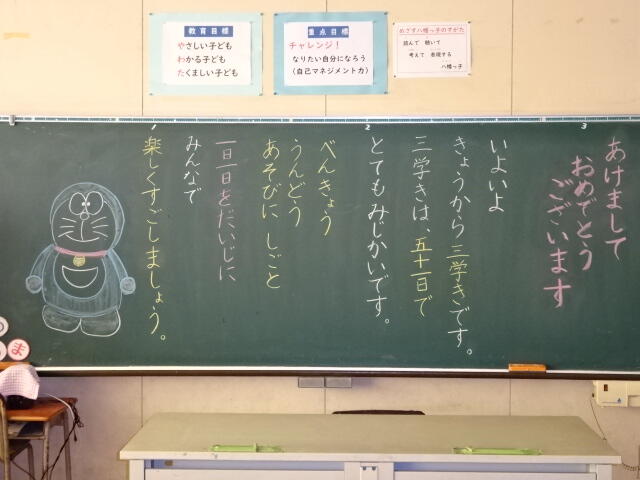 教育目標
やさしい子ども
わかる子ども
たくましい子ども
重点目標
チャレンジ！
なりたい自分になろう
（自己マネジメント力）
めざす八幡っ子のすがた
読んで　聴いて
考えて　表現する
八幡っ子
あけまして
おめでとう
ございます
いよいよ
きょうから三学きです。
三学きは、五十一日で
とてもみじかいです。
べんきょう
うんどう
あそびに しごと
一日一日をだいじに
みんなで
楽しくすごしましょう。
1
2
3
ま